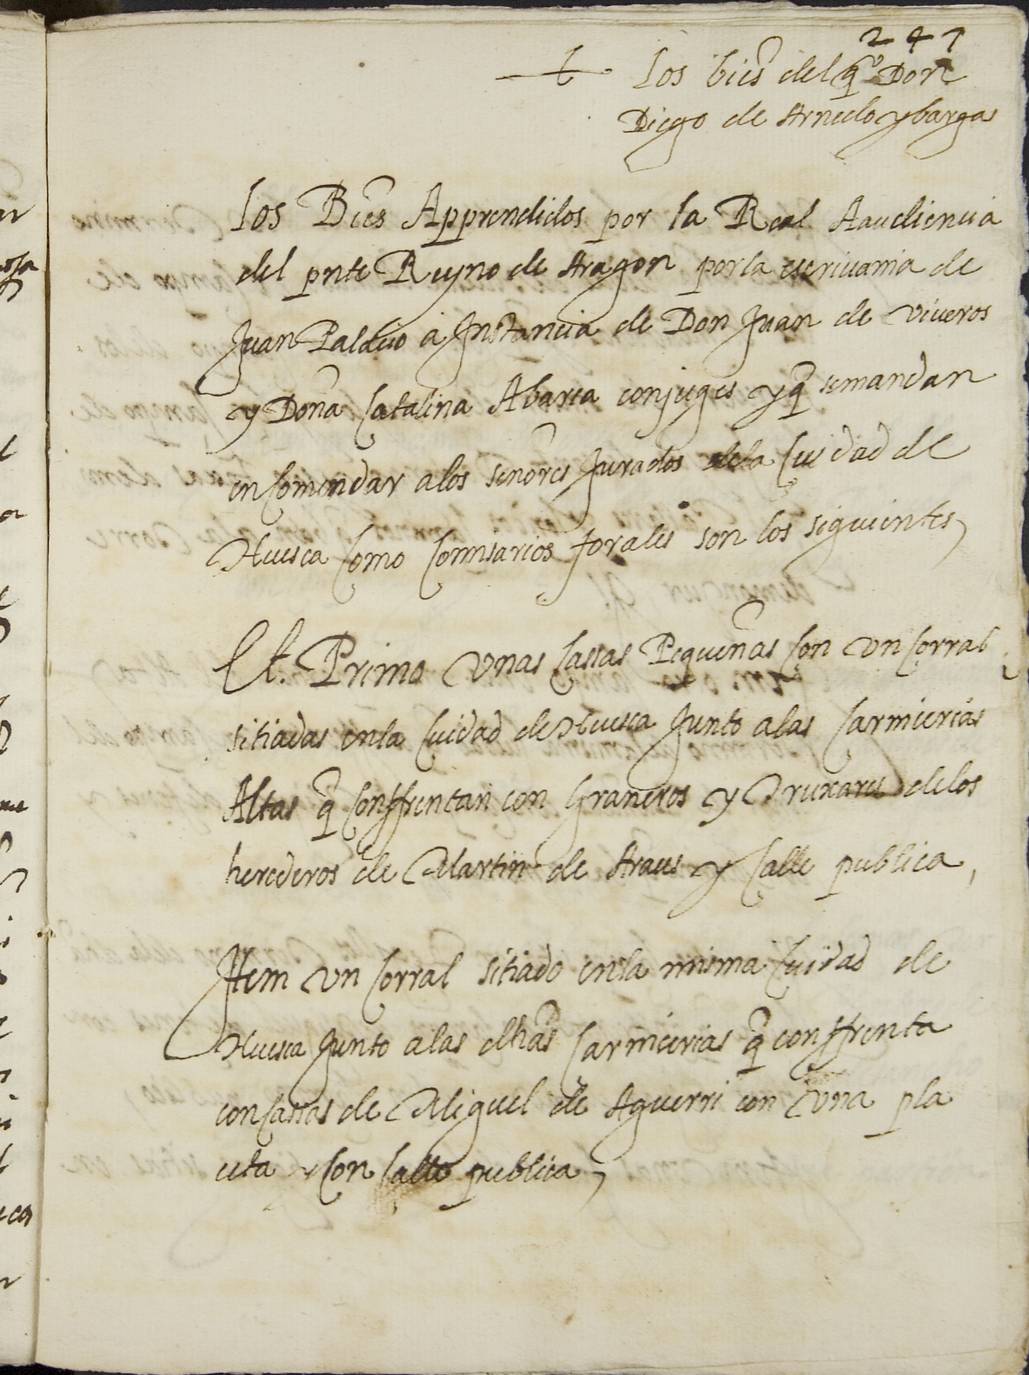 247
Los bies del q° Don
Diego de Arnedo y bargas
Los Bies Apprendidos por la Real Aaudiencia
del pnte Reyno de Aragon por la escriuania de
Juan a Instancia de Don Juan de Viueros
y Doña Catalina Abarca conjuges y q̃ se mandan
en Comendar a los señores Jurados de la Ciudad de
Huesca Como Comisarios forales son los siguientes,
Et. Primo Unas Cassas Pequeñas Con Un Corral
sitiadas en la Ciudad de Huesca Junto a las Carnicerias
Altas q̃ Conffrentan con Graneros y de los
herederos de Martin de Araus y Calle publica,
Item Un Corral sitiado en la misma Ciudad de
Huesca Junto a las dhas Carnicerias q̃ conffrenta
con Cassas de Miguel de Aguerri con Una pla
ceta y Con Calle publica,